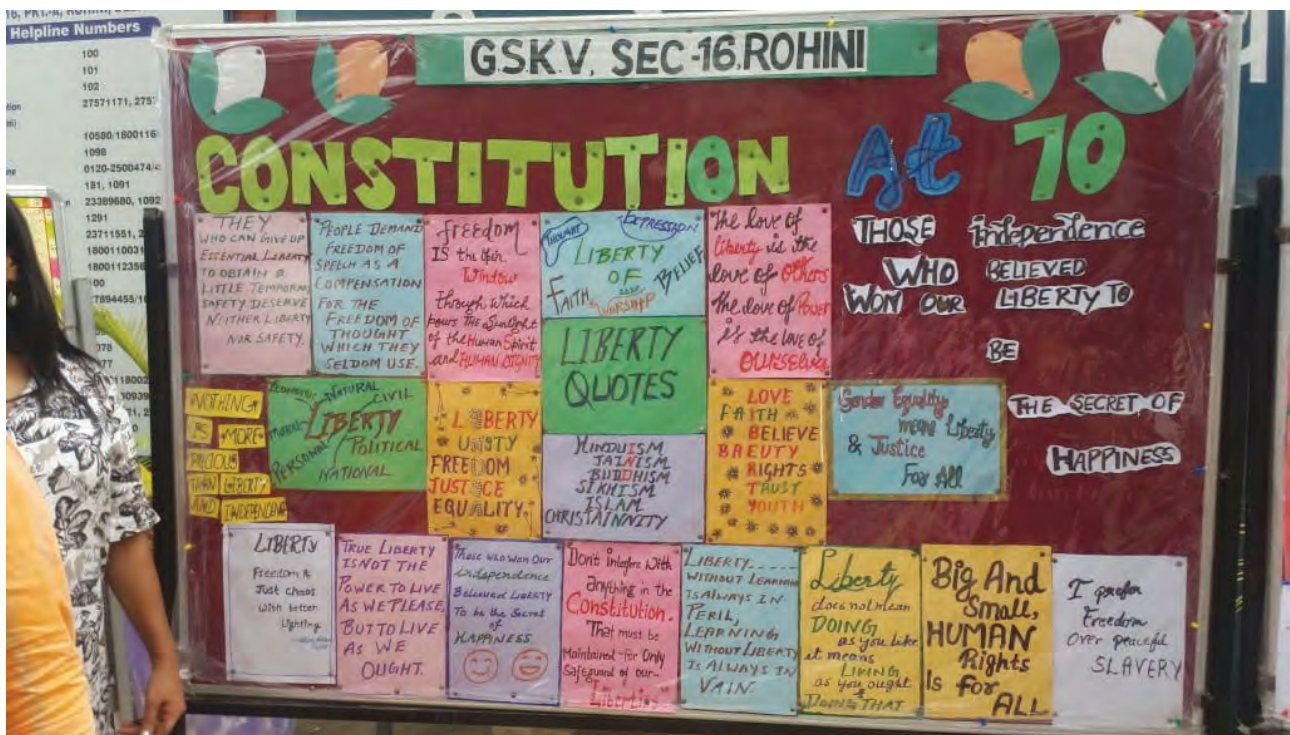 Helpline Numbers
100
101
102
27571171, 2757
1098
181, 1091
23389680, 1092
1291
23711551, 2
G.S.K.V. SEC-16.ROHINI
CONSTITUTION At 70
THEY
WHO CAN GIVE UP
ESSENTIAL LIBERTY
TO OBTAIN A
LITTLE TEMPORARY
SAFETY DESERVE
NEITHER LIBERTY
NOR SAFETY.
PEOPLE DEMAND
FREEDOM OF
SPEECH AS A
COMPENSATION
FOR THE
FREEDOM OF
THOUGHT
WHICH THEY
SELDOM USE.
freedom
IS the open
Window
through which
pours The Sunlight
of the Human Spirit
and HUMAN DIGNITY
THOUGHT EXPRESSION
LIBERTY
OF BELIEF
FAITH WORSHIP
LIBERTY
QUOTES
The love of
liberty is the
love of Others
The love of Power
is the love of
OURSELVES
THOSE
WHO
WON OUR
independence
BELIEVED
LIBERTY TO
BE
THE SECRET OF
HAPPINESS
NOTHING
IS MORE
THAN LIBERTY
AND INDEPENDENCE
ECONOMIC NATURAL
CIVIL
LIBERTY
POLITICAL
PERSONAL
NATIONAL
LIBERTY
UNITY
FREEDOM
JUSTICE
EQUALITY.
HINDUISM
JAINISM
BUDDHISM
SIKHISM
ISLAM
CHRISTAINNITY
LOVE
FAITH
BELIEVE
BREUTY
RIGHTS
TRUST
YOUTH
Gender Equality
means Liberty
& Justice
For All
LIBERTY
Freedom is
Just chaos
With better
Lighting
TRUE LIBERTY
IS NOT THE
POWER TO LIVE
AS WE PLEASE,
BUT TO LIVE
AS WE
OUGHT.
Those who won Our
independence
Believed LIBERTY
To be the Secret
of
HAPPINESS
Don't interfere With
anything in the
Constitution.
That must be
Maintained-for Only
Safeguard of our
"Liberties"
LIBERTY
WITHOUT LEARNING
IS ALWAYS IN
PERIL,
LEARNING
WITHOUT LIBERTY
IS ALWAYS IN
VAIN.
Liberty
does not mean
DOING
as you like
it means
LIVING
as you ought
&
DOING THAT
Big And
Small,
HUMAN
Rights
Is for
ALL
I prefer
Freedom
Over peaceful
SLAVERY